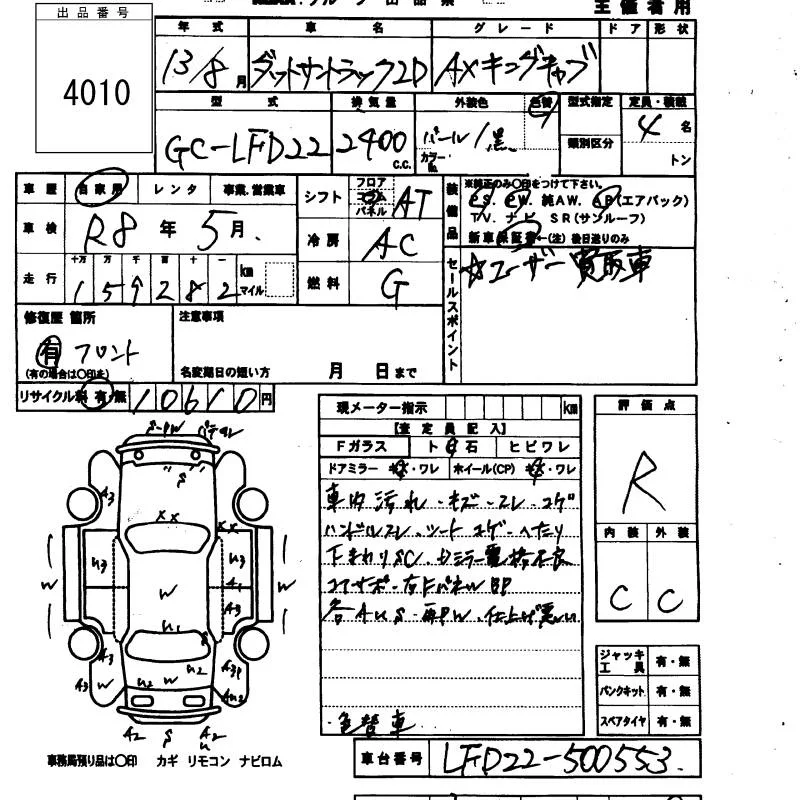 出品番号
4010
主催者用
年式 車名 グレード ドア 形状
13/8月 ダットサントラック2D AXキングキャブ
型式 排気量 外装色 色替 型式指定 定員・積載
GC-LFD22 2400 c.c. パール/黒 カラーNo. 類別区分 4名
トン
車歴 自家用 レンタ 事業.営業車
シフト フロア コラム パネル AT
装備品 ※純正のみ○印をつけて下さい。
PS. PW. 純AW. AB(エアバック)
TV. ナビ SR(サンルーフ)
新車保証書←(注)後日送りのみ
車検 R8年5月.
冷房 AC
走行 十万 万 千 百 十 一
159282 km マイル
燃料 G
セールスポイント ☆ユーザー買取車
修復歴 箇所 注意事項
有 フロント
(有の場合は○印を) 名変期日の短い方 月 日まで
リサイクル料 有・無 10610円
現メーター指示 km
評価点
【査定員記入】
Fガラス ト石 ヒビワレ
ドアミラー キズ・ワレ ホイール(CP) キズ・ワレ
R
車内汚れ・キズ・スレ・コゲ
ハンドルスレ、シートコゲ・ヘたり
下まわりSC、
各AUS・再PW、仕上げ悪い
・色替車
内装 外装
C C
ジャッキ工具 有・無
パンクキット 有・無
スペアタイヤ 有・無
S-PW
S
A3
XX XX
U3 U3
A1
W W W
A3
U1 S
A3 A3 W U2 U2
A2 S A2
U
事務局預り品は○印 カギ リモコン ナビロム
車台番号 LFD22-500553.